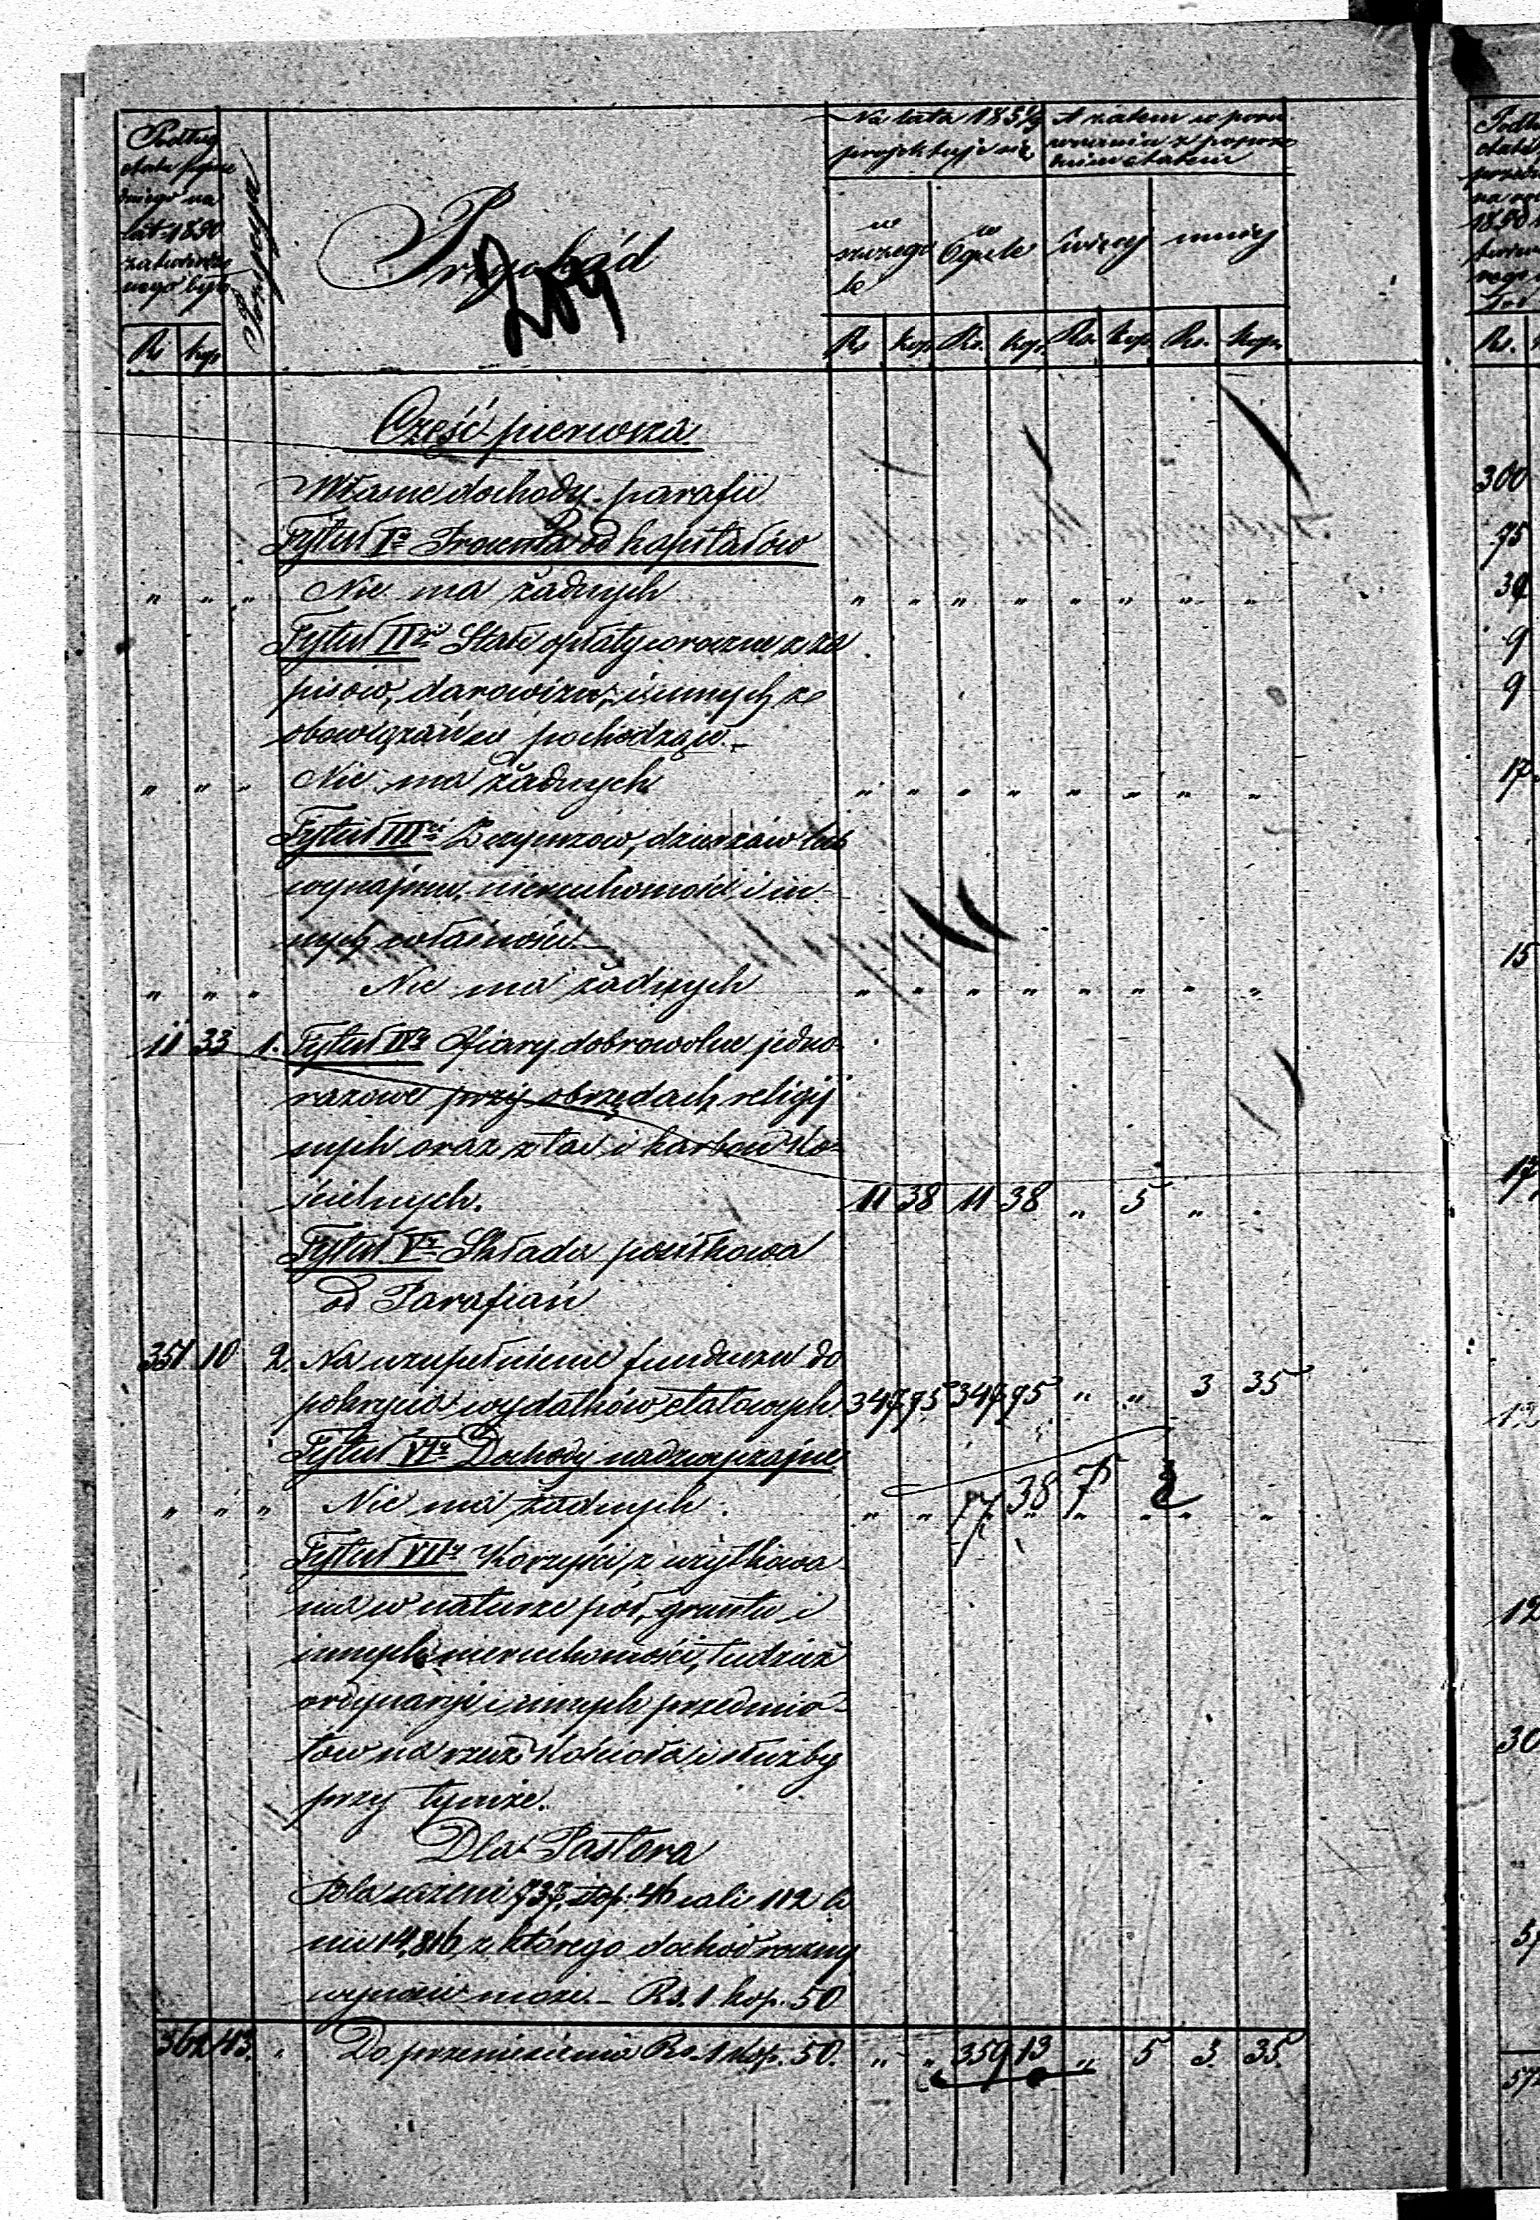 Podług
etatu
dniego na
lat 1850
Pozycya
Przychód
209
Na lata 185
projektuje się
A zatem w poró
wnaniu z poprze
dnim etatem
w
szczegó
le
w
Ogóle
więcej
mniej
Rs kop
Rs kop. Rs. kop. Rs. kop. Rs. kop.
Część pierwsza
Własne dochody parafii
Tytuł I Procenta od kapitałów
" " " Nie ma żadnych " " " " " " " "
Tytuł II Stałe opłaty wroczne z za
pisów, darowizn, i innych ze
obowiązań się pochodzące.
" " " Nie ma żadnych " " " " " " " "
Tytuł III Z czynszów, dzierżaw lub
wynajmu, nieruchomości i in-
nych własności.
" " " Nie ma żadnych " " " " " " " "
11 33 1. Tytuł IV Ofiary dobrowolne jedno-
razowe przy obrzędach religij
nych oraz z tac i karbon Ko-
ścielnych. 11 38 11 38 " 5 "
Tytuł V Składa posiłkowa
od Parafian
351 10 2. Na uzupełnienie funduszu do
pokrycia wydatków etatowych. 347 75 347 75 " " 3 35
Tytuł VI Dochody nadzwyczajne
" " " Nie ma żadnych. " "
Tytuł VII Korzyści z użytkowa-
nia w naturze pól, gruntu i
innych nieruchomości, tudzież
ordynaryi i innych przedmio-
tów na rzecz Kościoła i służby
przy tymże.
Dla Pastora
Pola sążeni 737, stop: 46 cali 112 li
nii 14,816, z którego dochód roczny
wynosić może – Rs. 1 kop. 50
362 43. " Do przeniesienia Rs. 1 kop. 50. " " 359 13 " 5 3 35.